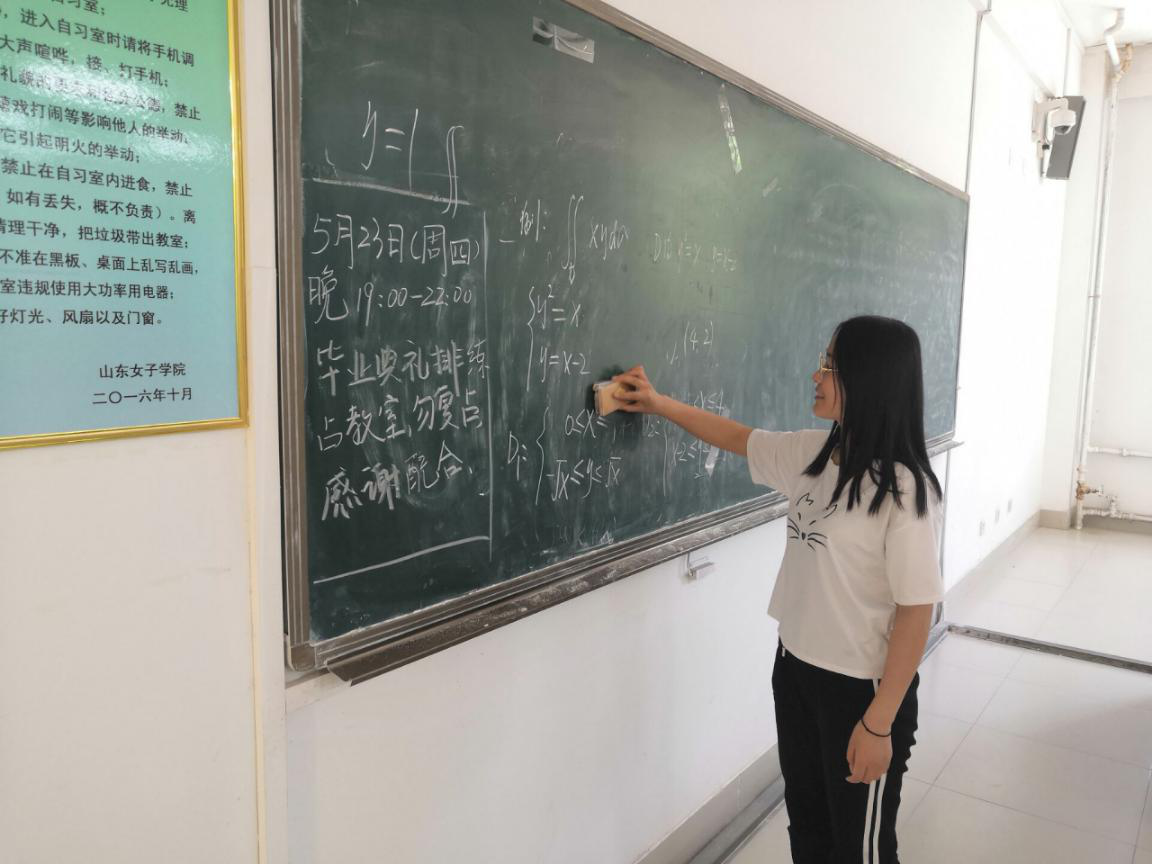 进入自习室时请将手机调
大声喧哗，接、打手机；
禁止
嬉戏打闹等影响他人的举动；
它引起明火的举动；
禁止在自习室内进食，禁止
如有丢失，概不负责）。离
清理干净，把垃圾带出教室；
不准在黑板、桌面上乱写乱画，
室违规使用大功率用电器；
好灯光、风扇以及门窗。
山东女子学院
二〇一六年十月
y=1 ∬
5月23日(周四)
晚 19:00-22:00
毕业典礼排练
占教室,勿复占
感谢配合.
例1: ∬ xydσ
D
y²=x
y=x-2
(4,2)
D₁: 0≤x≤
-√x≤y≤√x